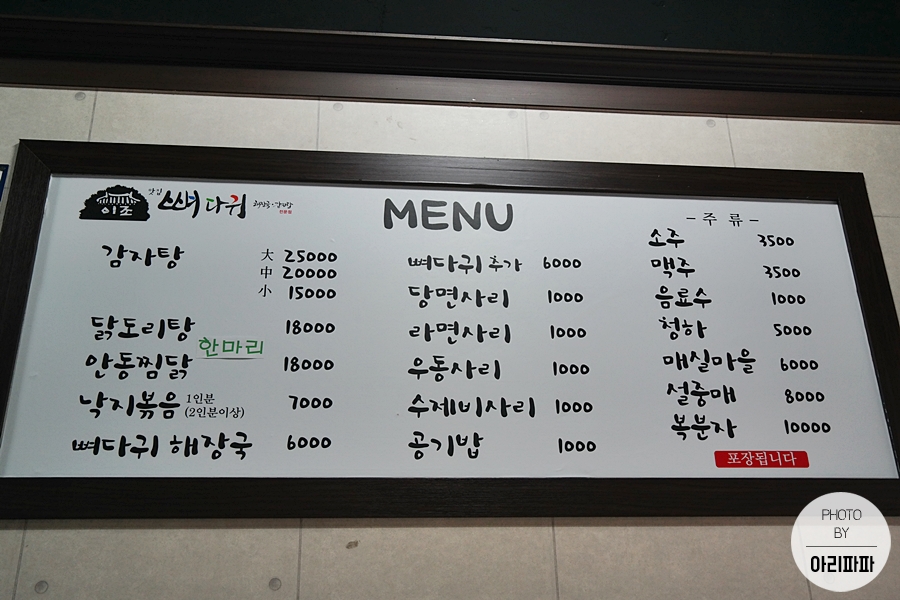 이조
맛집
뼈다귀
해장국·감자탕
MENU
감자탕 大 25000
中 20000
小 15000
닭도리탕 18000
한마리
안동찜닭 18000
낙지볶음 1인분 (2인분이상) 7000
뼈다귀 해장국 6000
뼈다귀 추가 6000
당면사리 1000
라면사리 1000
우동사리 1000
수제비사리 1000
공기밥 1000
- 주 류 -
소주 3500
맥주 3500
음료수 1000
청하 5000
매실마을 6000
설중매 8000
복분자 10000
포장됩니다
PHOTO
BY
아리파파